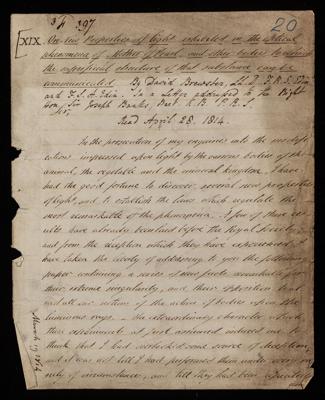 34 397
20
XIX. On new Properties of Light exhibited in the optical
phenomena of Mother of Pearl, and other bodies to which
the superficial structure of that substance can be
communicated. By David Brewster, LL.D. F.R.S. Edin.
and F.S.A. Edin. In a Letter addressed to the Right
Hon. Sir Joseph Banks, Bart. K.B. P.R.S.
Sir,
Read April 28. 1814.
In the prosecution of my enquiries into the modifi-
cations impressed upon light by the various bodies of the
animal, the vegetable and the mineral kingdom, I have
had the good fortune to discover several new properties
of light, and to establish the laws which regulate the
most remarkable of the phenomena. A few of these re-
sults have already been laid before the Royal Society
and from the reception which they have experienced, I
have taken the liberty of addressing to you the following
paper containing a series of new facts remarkable for
their extreme singularity, and their opposition to
all our notions of the action of bodies upon the
luminous rays. - the extraordinary character which
these assumed at first induced me to
think that I had overlooked some source of deception,
and it was not till I had performed them under every va-
riety of circumstance, and till they had been
March 19 1814